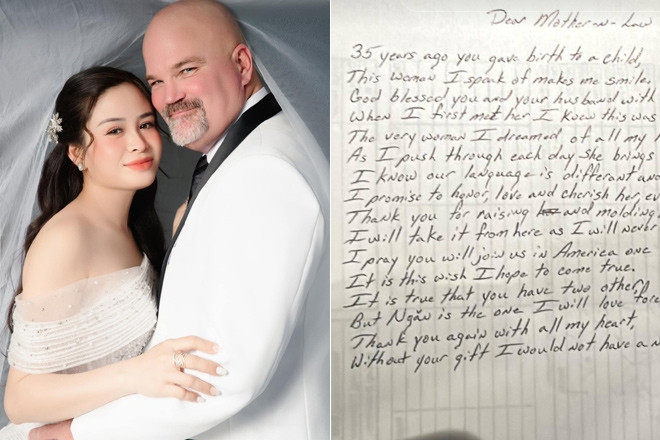 Dear Mother-n-Law
35 years ago you gave birth to a child,
This woman I speak of makes me smile.
God blessed you and your husband with
When I first met her I knew this was
The very woman I dreamed of all my
As I push through each day she brings
I know our language is different and
I promise to honor, love and cherish her,
Thank you for raising her and molding
I will take it from here as I will never
I pray you will join us in America one
It is this wish I hope to come true.
It is true that you have two other
But Ngân is the one I will love
Thank you again with all my heart,
Without your gift I would not have a